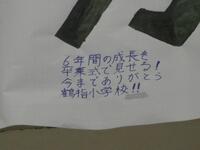 6年間の成長を
卒業式で見せる!
今までありがとう
鶴指小学校!!